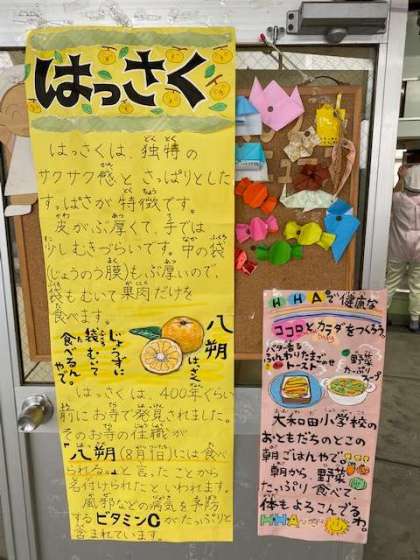 はっさく
はっさくは、独特の
サクサク感と、さっぱりとした
すっぱさが特徴です。
皮がぶ厚くて、手では
少しむきづらいです。中の袋
(じょうのう膜)もぶ厚いので、
袋もむいて果肉だけを
食べます。
じょうずに
袋むいて
食べるんやで。
八朔
はっさく
はっさくは、400年くらい
前にお寺で発見されました。
そのお寺の住職が
"八朔(8月1日)には食べ
られる。"と言ったことから
名付けられたといわれます。
風邪などの病気を予防
するビタミンCがたっぷりと
含まれています。
HHAで健康な
ココロとカラダをつくろう。
バター香る
ふんわりたまごのせ
トースト
野菜
たっぷり
スープ
大和田小学校の
おともだちのとこの
朝ごはんやで。
朝から野菜
たっぷり食べて
体もよろこんでるわ。
HHA